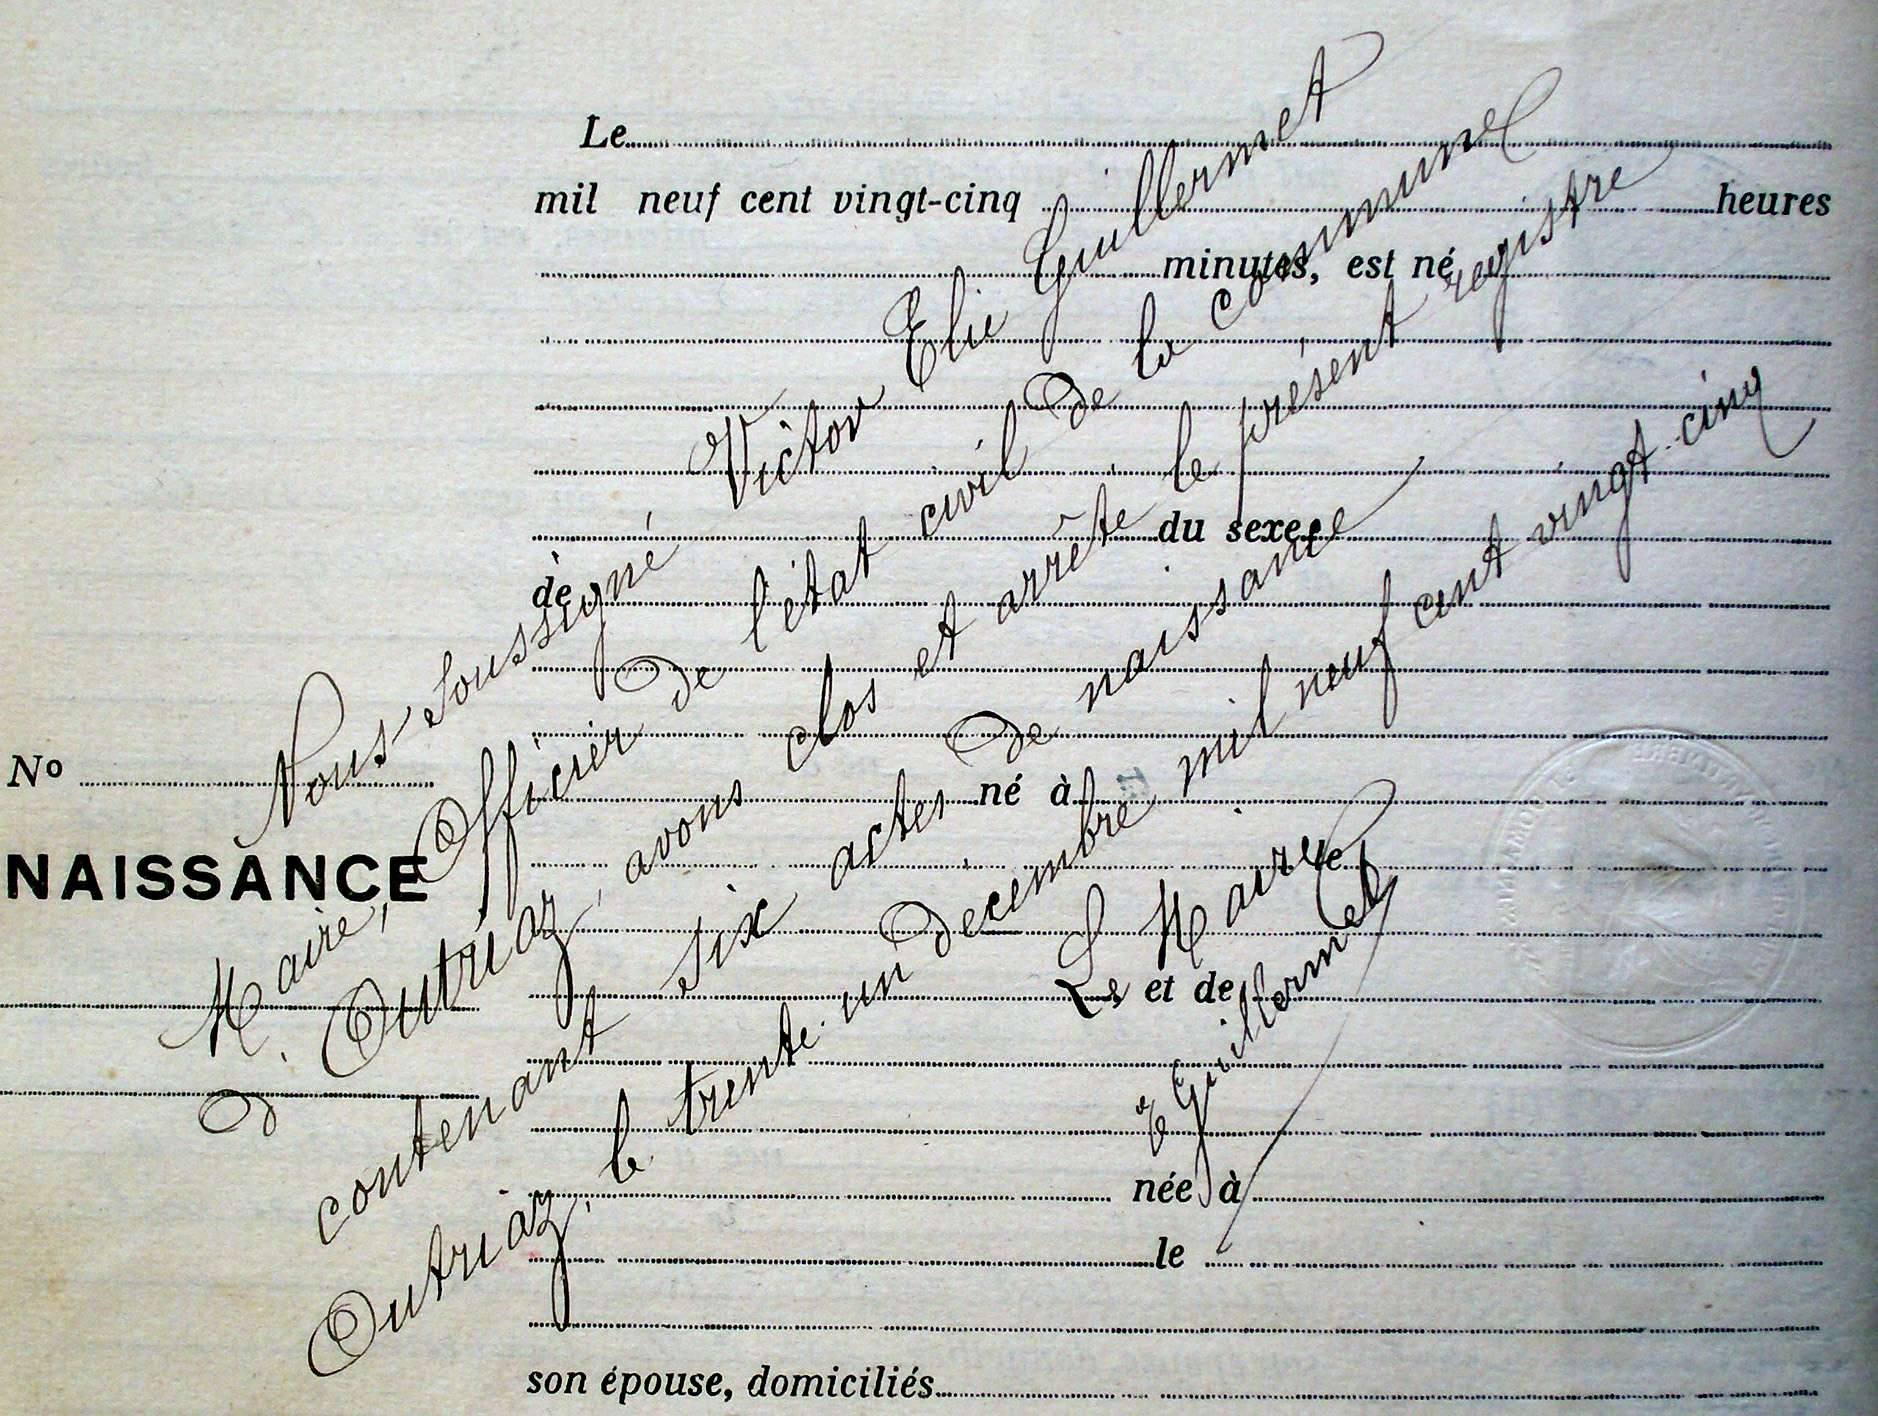 Le
mil neuf cent vingt-cinq heures
minutes, est né
du sexe
de
né à
le
et de
née à
le
son épouse, domiciliés
No
NAISSANCE
Nous soussigné Victor Elie Guillermet
Maire, Officier de l'état civil de la commune
d'Outriaz, avons clos et arrêté le présent registre
contenant six actes de naissance
Outriaz, le trente-un décembre mil neuf cent vingt-cinq
Le Maire
E Guillermet